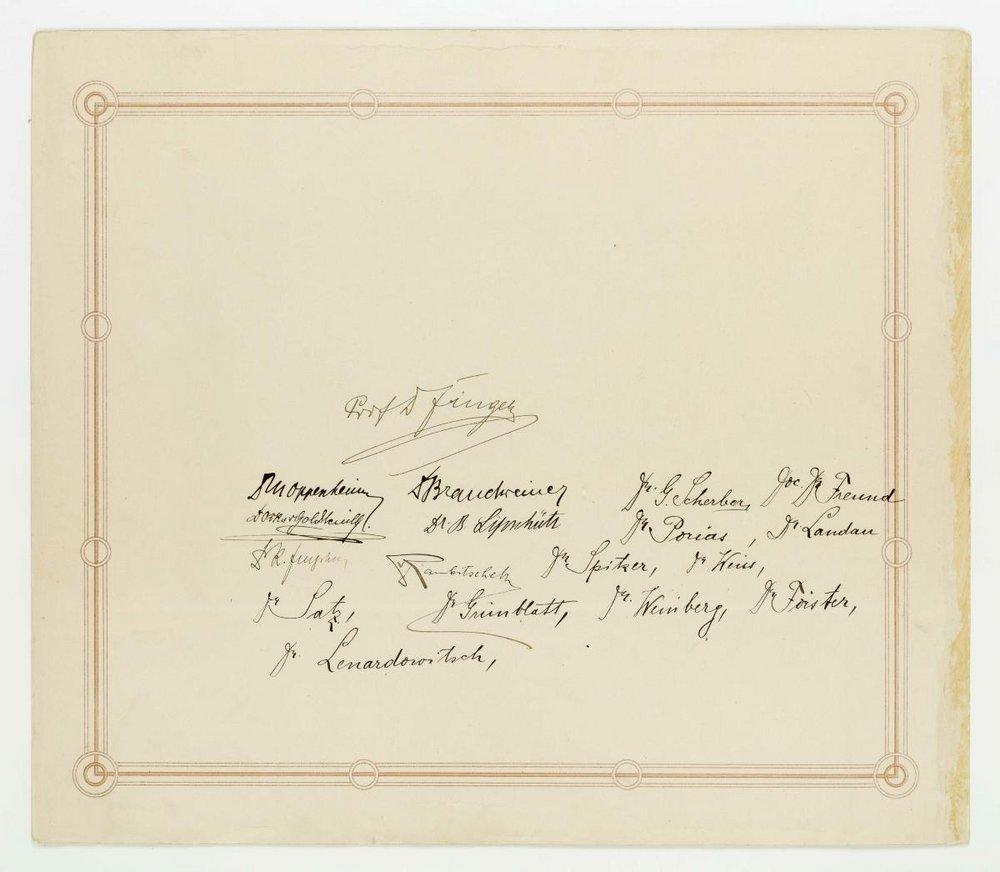 Prof D Finger
Dr M Oppenheim Dr Brandweiner Dr. G. Scherber, Doc Dr Freund
Dr B Lipschütz Dr. Porias, Dr Landau
Dr. Spitzer, Dr
Dr Satz, Dr Grünblatt, Dr. Weinberg, Dr Foister,
Dr. Lenardowitsch,